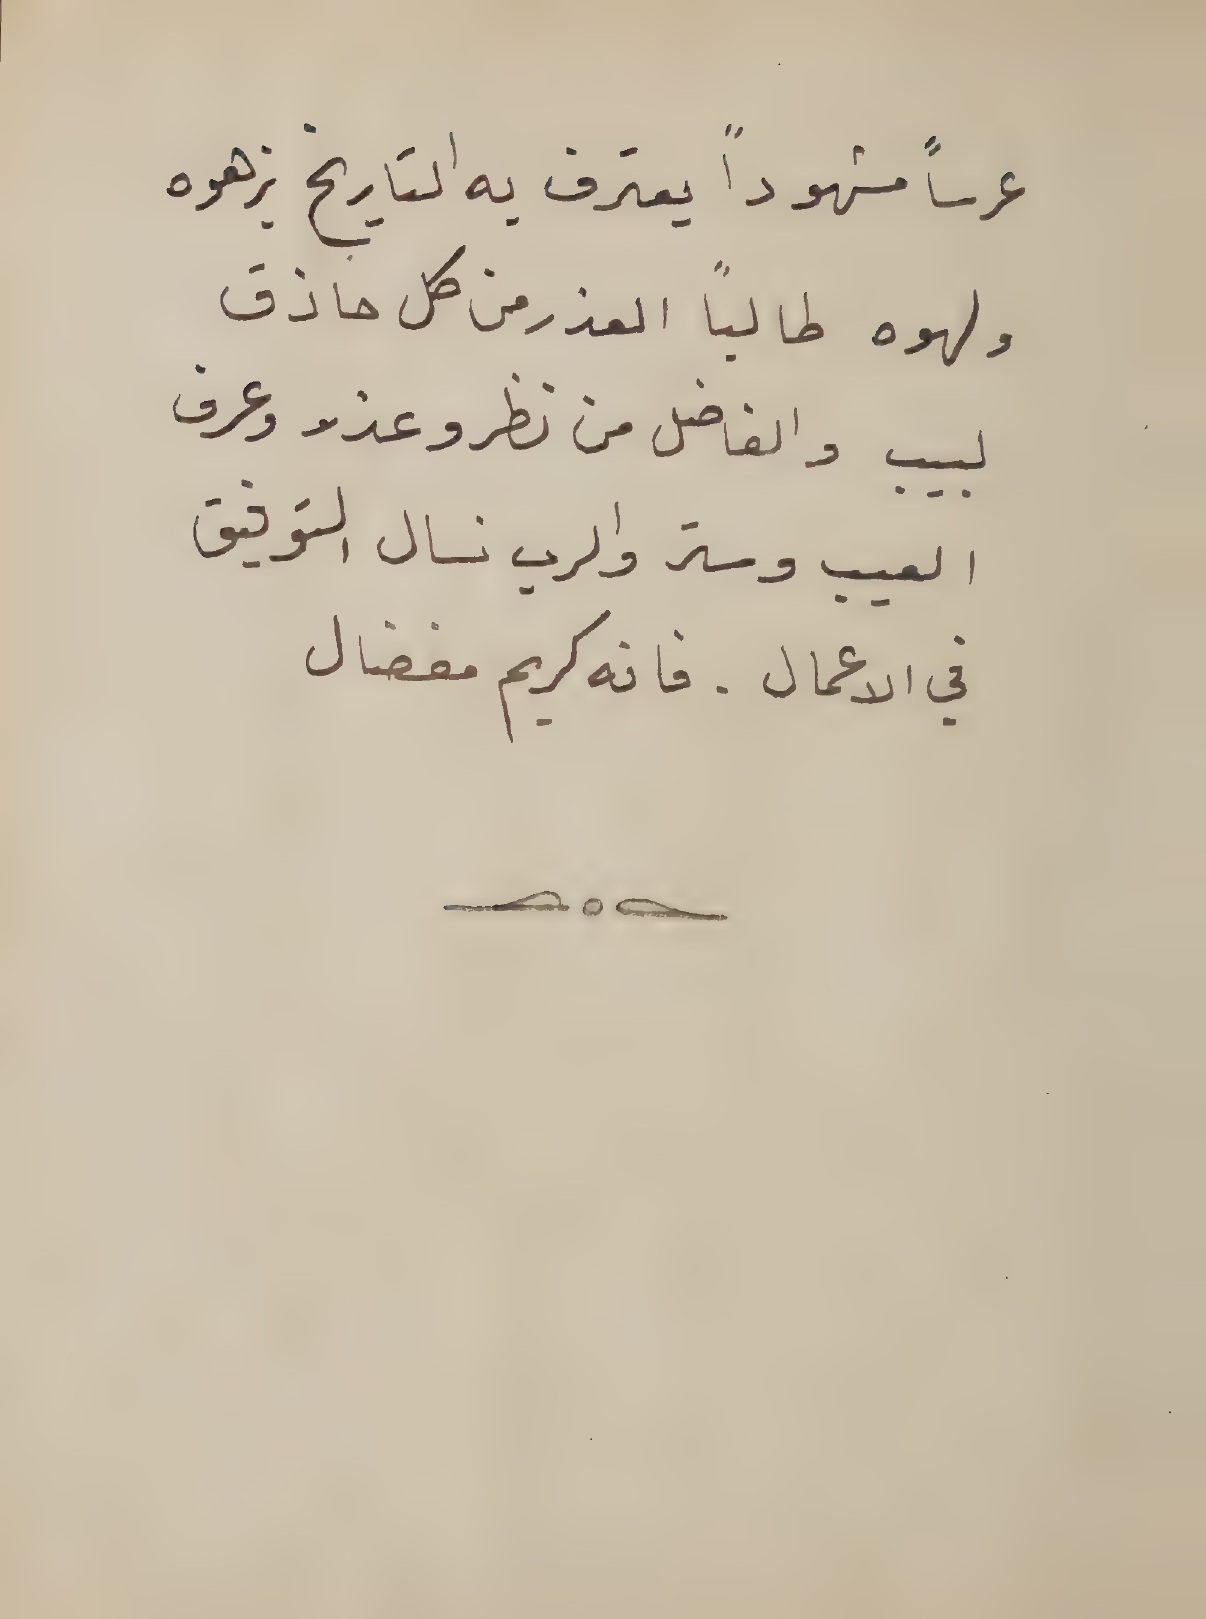 عرساً مشهوداً يعترف به التاريخ بزهوه
ولهوه طالباً العذر من كل حاذق
لبيب والفاضل من نظر وعذر وعرف
العيب وستر والرب نسال التوفيق
في الاعمال . فانه كريم مفضال